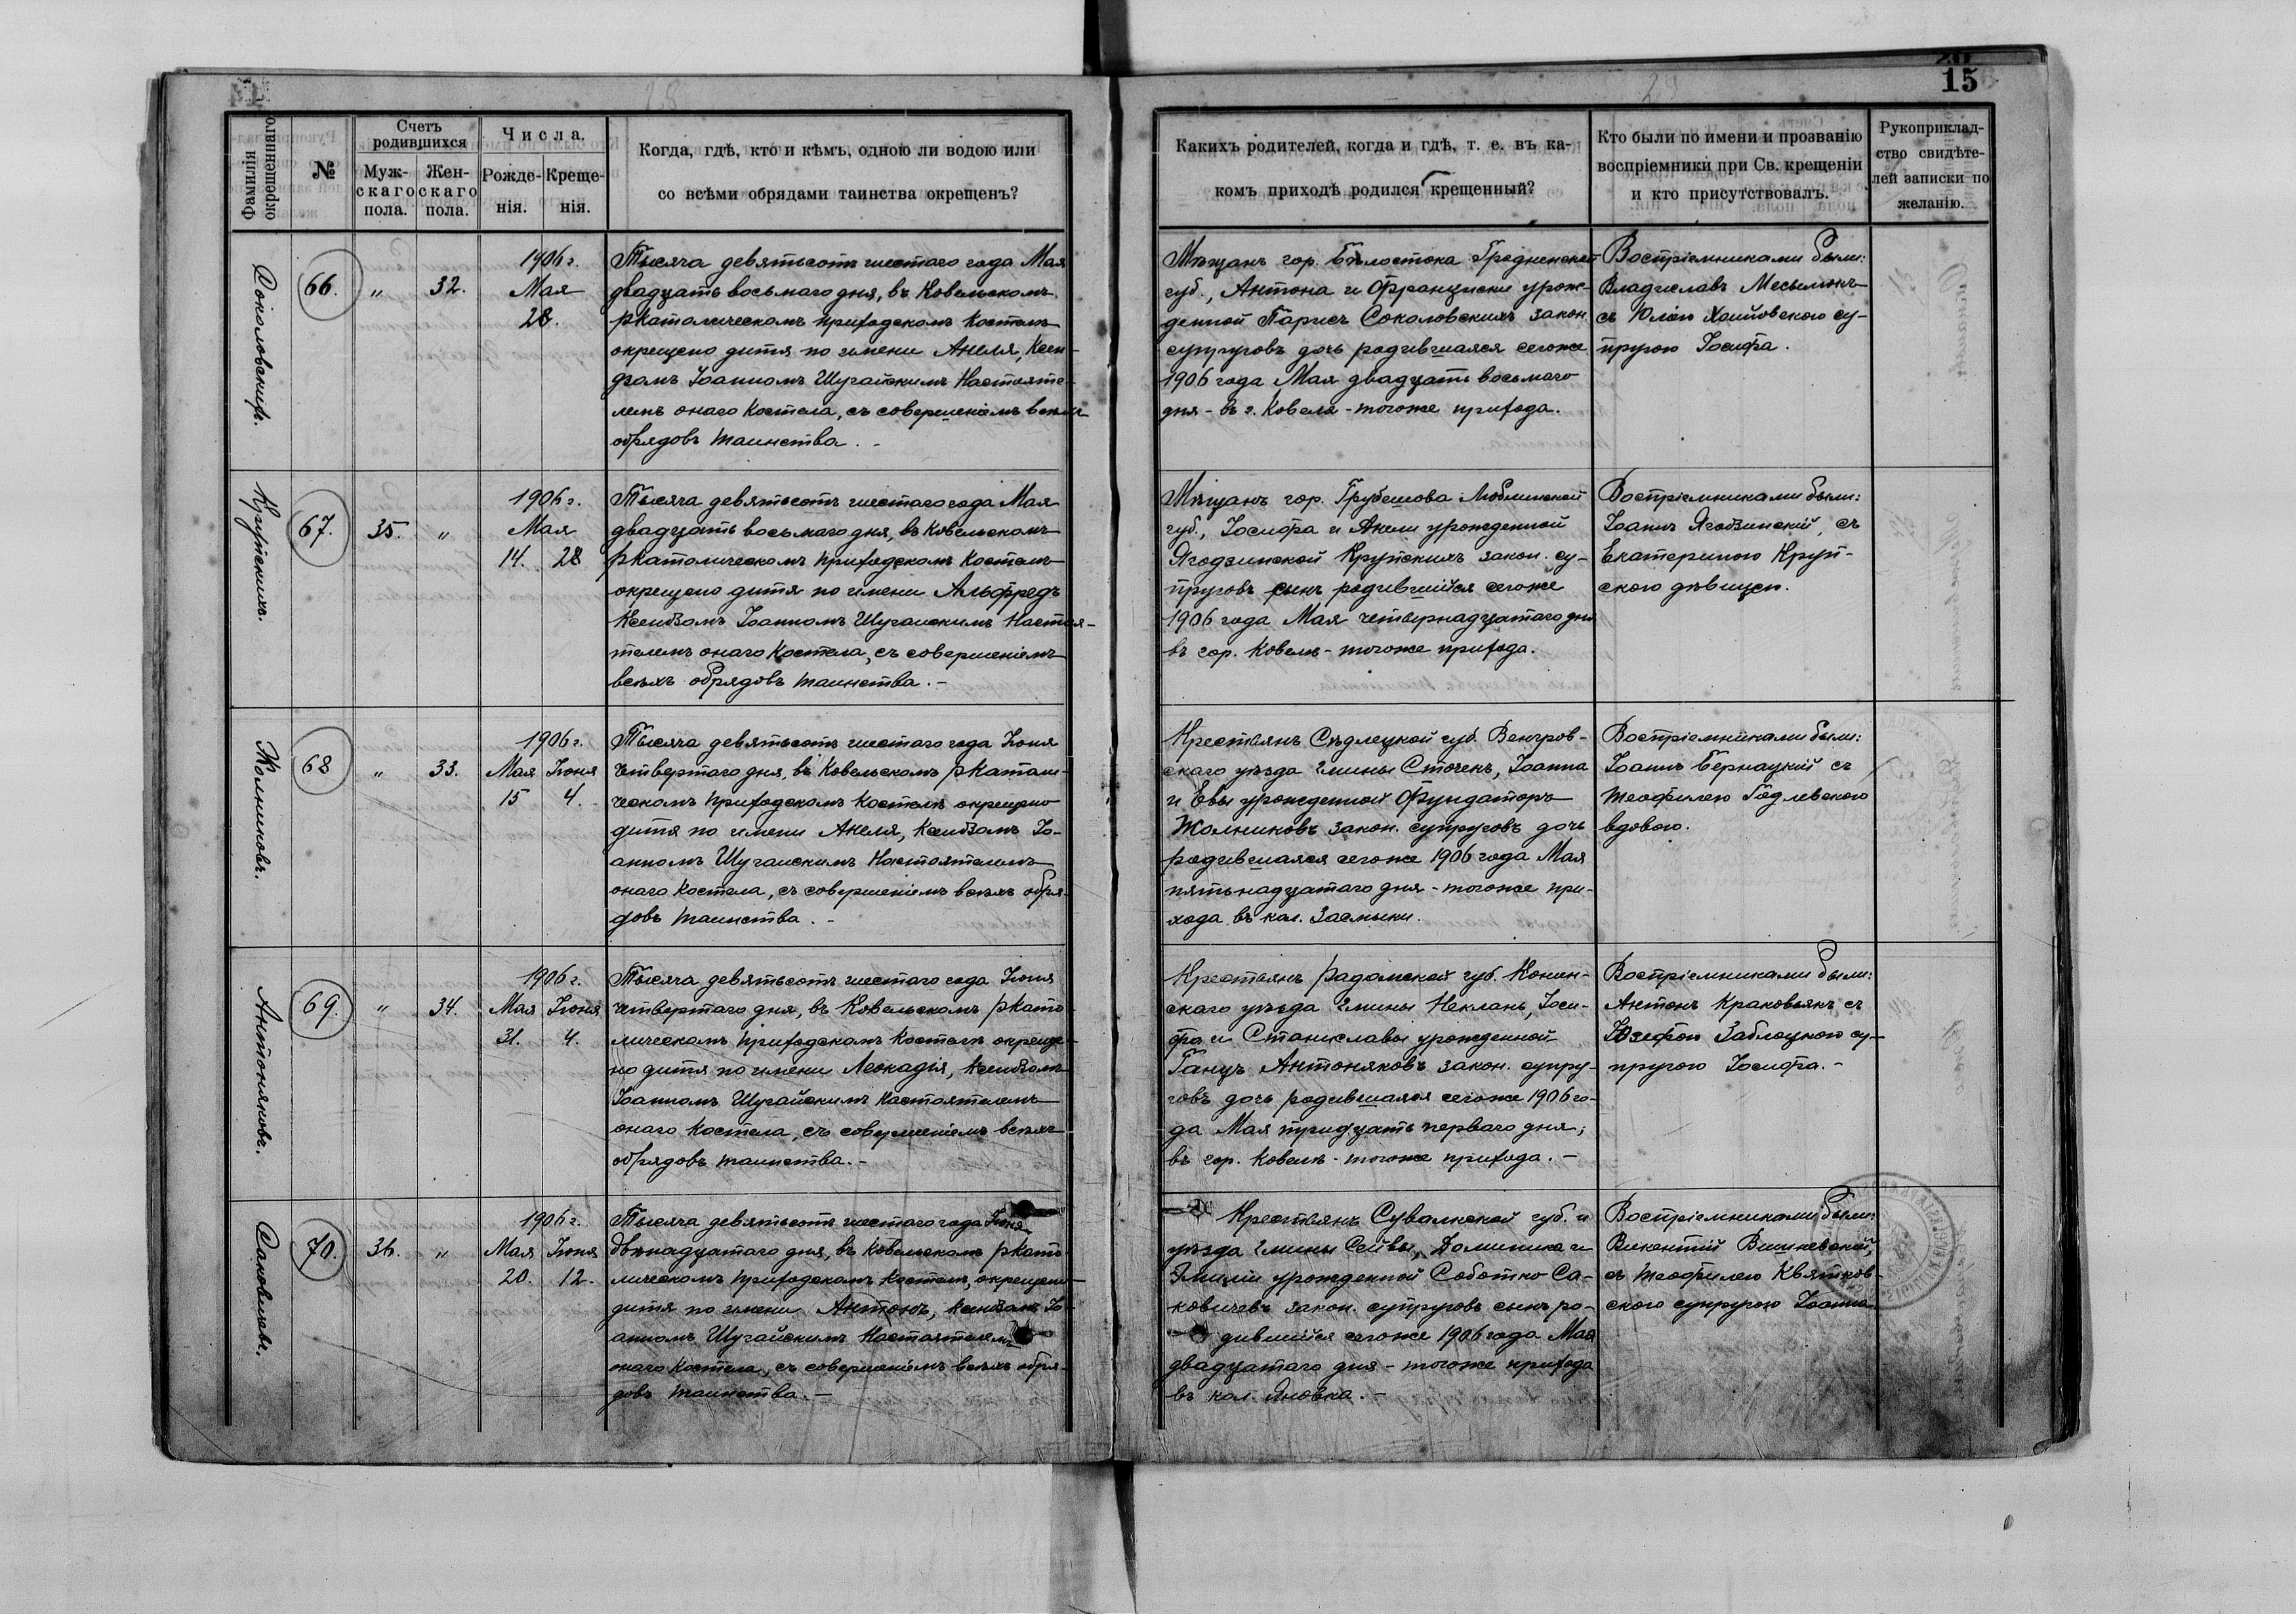 15
Фамилія
окрещеннаго
№
Счетъ
родившихся
Муж-
скаго
пола.
Жен-
скаго
пола.
Числа.
Рожде-
нія.
Креще-
нія.
Когда, гдѣ, кто и кѣмъ, одною ли водою или
со всѣми обрядами таинства окрещенъ?
Какихъ родителей, когда и гдѣ, т. е. въ ка-
комъ приходѣ родился крещенный?
Кто были по имени и прозванію
воспріемники при Св. крещеніи
и кто присутствовалъ.
Рукоприклад-
ство свидѣте-
лей записки по
желанію.
Соколовскихъ.
66.
"
32.
1906 г.
Мая
28.
Тысяча девятьсотъ шестаго года Мая
двадцать восьмаго дня, въ Ковельскомъ
ркатолическомъ приходскомъ Костелѣ
окрещено дитя по имени Анеля, Ксен-
дзомъ Іоанномъ Шугайскимъ Настояте-
лемъ онаго Костела, съ совершеніемъ всѣхъ
обрядовъ таинства. -
Мѣщанъ гор. Бѣлостока Гродненской
губ., Антона и Францишки урож-
денной Парисъ Соколовскихъ закон.
супруговъ дочь родившаяся сегоже
1906 года Мая двадцать восьмаго
дня - въ г. Ковелѣ - тогоже прихода.
Воспріемниками были:
Владиславъ
съ Юліею супругою Іосифа.
Крупскихъ.
67.
35.
"
1906 г.
Мая
14. 28
Тысяча девятьсотъ шестаго года Мая
двадцать восьмаго дня, въ Ковельскомъ
ркатолическомъ приходскомъ Костелѣ
окрещено дитя по имени Альфредъ
Ксендзомъ Іоанномъ Шугайскимъ Настоя-
телемъ онаго Костела, съ совершеніемъ
всѣхъ обрядовъ таинства. -
Мѣщанъ гор. Грубешова Люблинской
губ., Іосифа и Анели урожденной
Ягодзинской Крупскихъ закон. су-
пруговъ сынъ родившійся сегоже
1906 года Мая четырнадцатаго дня
въ гор. Ковелѣ - тогоже прихода.
Воспріемниками были:
Іоаннъ Ягодзинскій, съ
Екатериною Круп-
скою дѣвицею.
Жолниковъ.
68
"
33.
1906 г.
Мая Іюня
15 4.
Тысяча девятьсотъ шестаго года Іюня
четвертаго дня, въ Ковельскомъ ркатоли-
ческомъ приходскомъ Костелѣ окрещено
дитя по имени Анеля, Ксендзомъ Іо-
анномъ Шугайскимъ Настоятелемъ
онаго Костела, съ совершеніемъ всѣхъ обря-
довъ таинства. -
Крестьянъ Сѣдлецкой губ. Венгров-
скаго уѣзда гмины Сточекъ, Іоанна
и Евы урожденной Фундаторъ
Жолниковъ закон. супруговъ дочь
родившаяся сегоже 1906 года Мая
пятьнадцатаго дня - тогоже при-
хода въ кол. Засмыки.
Воспріемниками были:
Іоаннъ Бернацкій съ
Теофилею Годлевскою
вдовою.
Антоняковъ.
69.
"
34.
1906 г.
Мая Іюня
31. 4.
Тысяча девятьсотъ шестаго года Іюня
четвертаго дня, въ Ковельскомъ ркато-
лическомъ приходскомъ Костелѣ окреще-
но дитя по имени Леокадія, Ксендзомъ
Іоанномъ Шугайскимъ Настоятелемъ
онаго Костела, съ совершеніемъ всѣхъ
обрядовъ таинства. -
Крестьянъ Радомской губ. Конин-
скаго уѣзда гмины Неклань, Іоси-
фа и Станиславы урожденной
Ганцъ Антоняковъ закон. супру-
говъ дочь родившаяся сегоже 1906 го-
да Мая тридцать перваго дня,
въ гор. Ковелѣ - тогоже прихода. -
Воспріемниками были:
Антонъ Краковьякъ, съ
Юзефою Заблоцкою су-
пругою Іосифа. -
Саковичевъ.
70.
36.
"
1906 г.
Мая Іюня
20. 12.
Тысяча девятьсотъ шестаго года Іюня
двѣнадцатаго дня, въ Ковельскомъ ркато-
лическомъ приходскомъ Костелѣ, окрещено
дитя по имени Антонъ, Ксендзомъ Іо-
анномъ Шугайскимъ Настоятелемъ
онаго Костела, съ совершеніемъ всѣхъ обря-
довъ таинства. -
Крестьянъ Сувалкской губ. и
уѣзда гмины Сейвы, Доминика и
Эмиліи урожденной Соботко Са-
ковичевъ закон. супруговъ сынъ ро-
дившійся сегоже 1906 года Мая
двадцатаго дня - тогоже прихода
въ кол. Яновка. -
Воспріемниками были:
Викентій Вишневскій,
съ Теофилею Квятков-
скою супругою Іоанна.